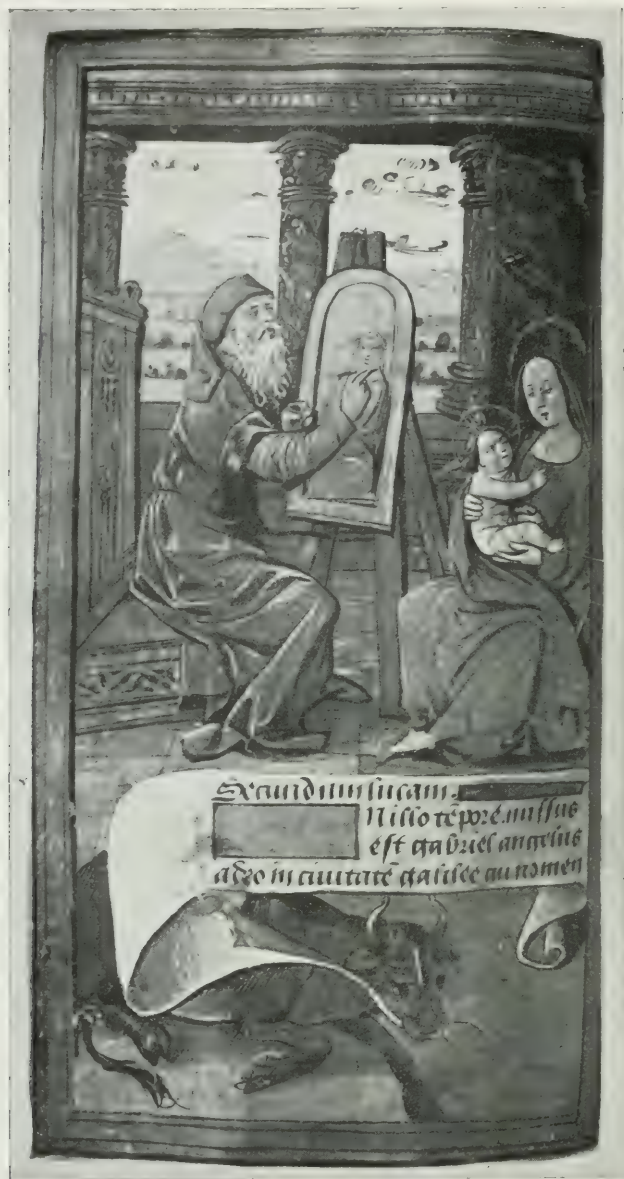 Secundum lucam.
N illo tēpore missus
est gabriel angelus
a deo in ciuitatē galilee cui nomen